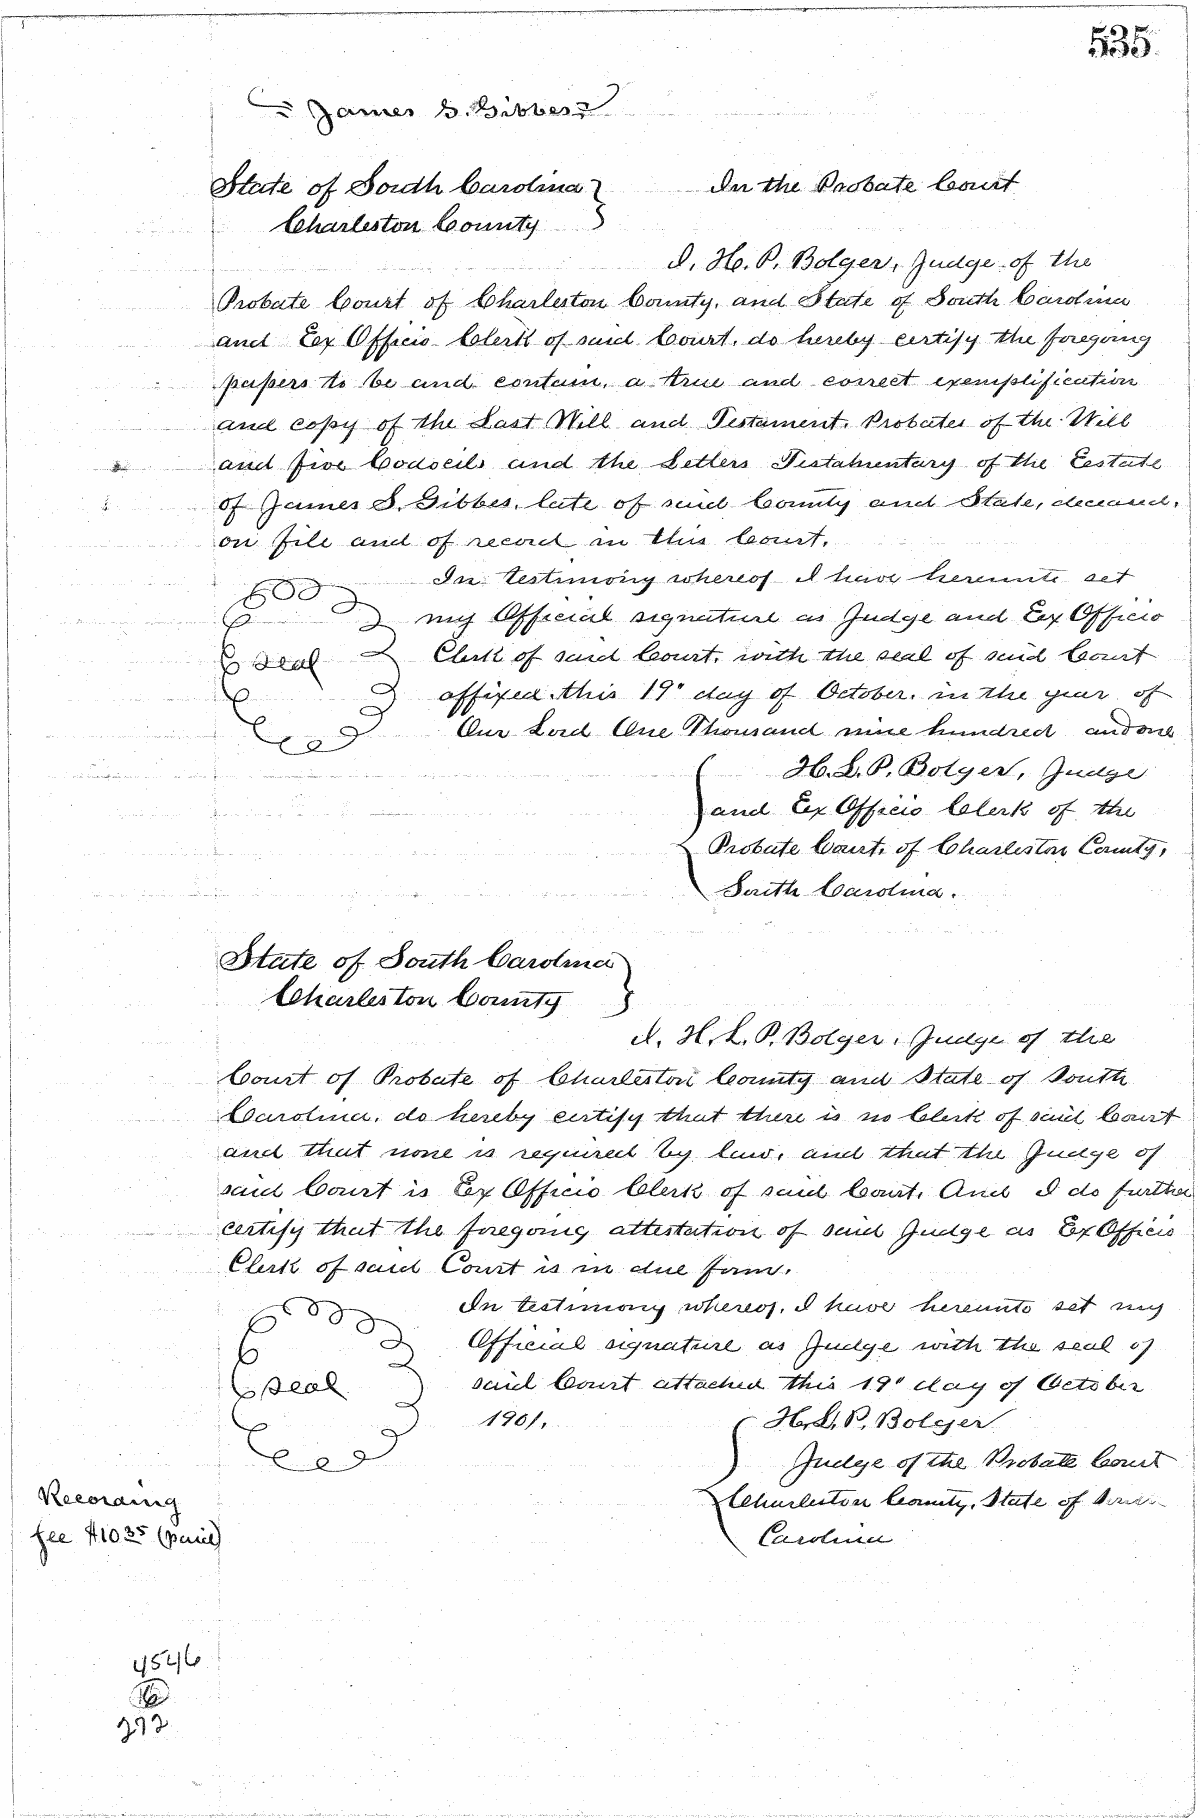 535
James S. Gibbes
State of South Carolina } In the Probate Court
Charleston County }
I, H. P. Bolger, Judge of the
Probate Court of Charleston County, and State of South Carolina
and Ex Officio Clerk of said Court, do hereby certify the foregoing
papers to be and contain, a true and correct exemplification
and copy of the Last Will and Testament, Probates of the Will
and five Codocils and the Letters Testamentary of the Estate
of James S. Gibbes, late of said County and State, deceased,
on file and of record in this Court.
In testimony whereof I have hereunto set
my Official signature as Judge and Ex Officio
seal Clerk of said Court, with the seal of said Court
affixed this 19" day of October, in the year of
Our Lord One Thousand nine hundred and one
H. L. P. Bolger, Judge
and Ex Officio Clerk of the
Probate Court, of Charleston County,
South Carolina.
State of South Carolina }
Charleston County }
I, H. L. P. Bolger, Judge of the
Court of Probate of Charleston County and State of South
Carolina, do hereby certify that there is no Clerk of said Court
and that none is required by law, and that the Judge of
said Court is Ex Officio Clerk of said Court. And I do further
certify that the foregoing attestation of said Judge as Ex Officio
Clerk of said Court is in due form.
In testimony whereof, I have hereunto set my
Official signature as Judge with the seal of
seal said Court attached this 19" day of October
1901. H. L. P. Bolger
Judge of the Probate Court
Charleston County, State of South
Carolina
Recording
fee $10 35 (paid)
4546
16
272